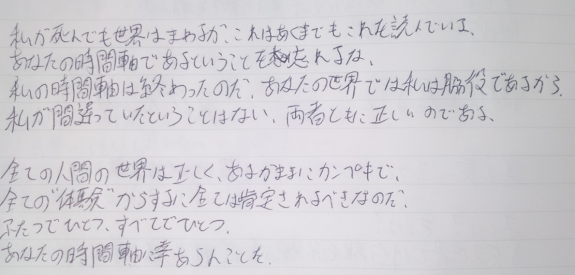 私が死んでも世界はまわるが、これはあくまでもこれを読んでいる、
あなたの時間軸であるということを忘れるな、
私の時間軸は終わったのだ、あなたの世界では私は脇役であるから、
私が間違っていたということはない、両者ともに正しいのである、
全ての人間の世界は正しく、あるがままにカンペキで、
全ての"体験"からするに全ては肯定されるべきなのだ、
ふたつでひとつ、すべてでひとつ、
あなたの時間軸に幸あらんことを、